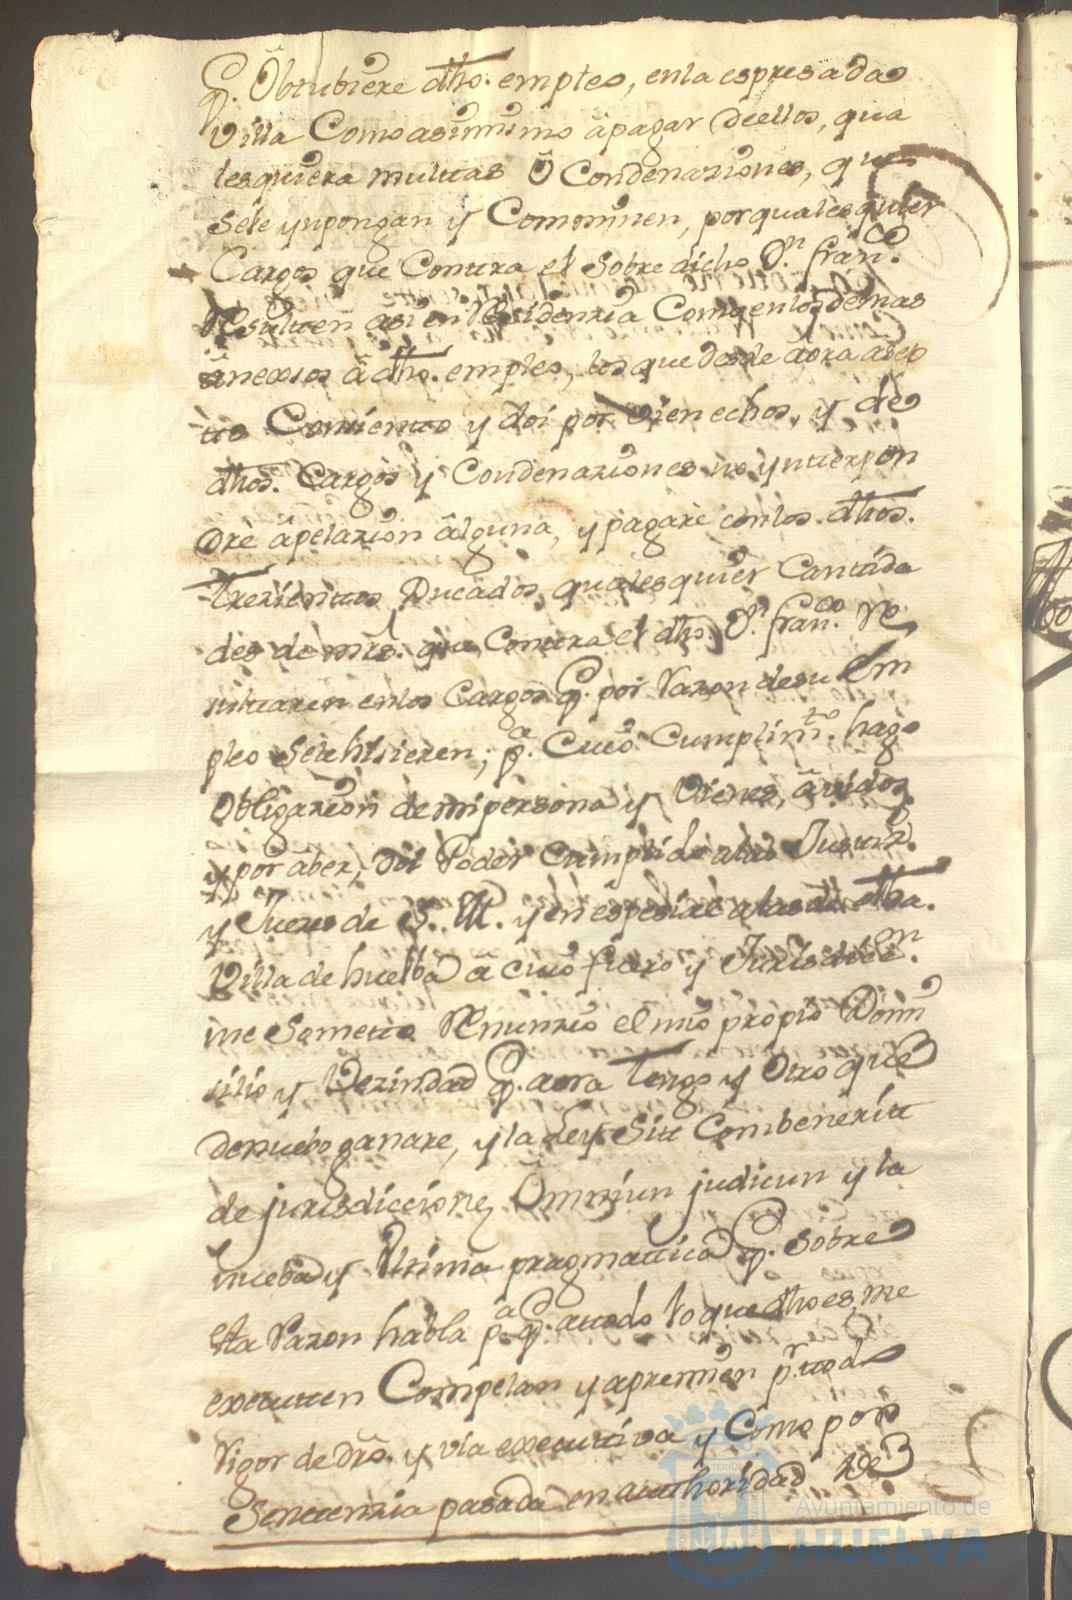 q̃. Obtubiere dho. empleo, enla espresada
Villa Como asimismo â pagar deellos, qua
lesquiera multtas ô Condenaziones, que
sele ympongan y Comminen, por qualesquier
Cargos que Conttra el Sobre dicho Dn. franco.
Resultten asi en Residenzia Como enlos demas
ânexsos â dho. empleo, los que desde aora asep
tto Consientto y doi por Vien echos, y de
dhos. Cargos y Condenaziones no ynterpon
dre âpelazion âlguna, y pagare conlos dhos.
trezienttos Ducados qualesquier Cantida
des de mrs. que Conttra el dho. Dn. franco. Re
sulttaren enlos Cargos q̃. por Razon desu Em
pleo sele hisieren; pa. Cuio Cumplimto. hago
Obligazion de mi persona y Vienes, âvidos
y por aber, doi Poder Cumplido alas Justiz.
y Juezes de S. M. y en espesial alas de dha.
Villa de huelba â cuio fuero y Jurisdiccon.
me Sometto Renunzio el mio propio Domi
silio y Vezindad q̃. aora tengo y Otro que
denuebo ganare, y la Ley Sitt Combeneritt
de jurisdiccione Omniun judicun y la
nueba y Ultima pragmattica q̃. Sobre
esta Razon habla pa. q̃. attodo lo que dho es, me
executten Compelan y apremien pr. ttodo
Rigor de dro. y via executtiva y Como por
Senttenzia pasada en autthoridad de
Ayuntamiento de
HUELVA